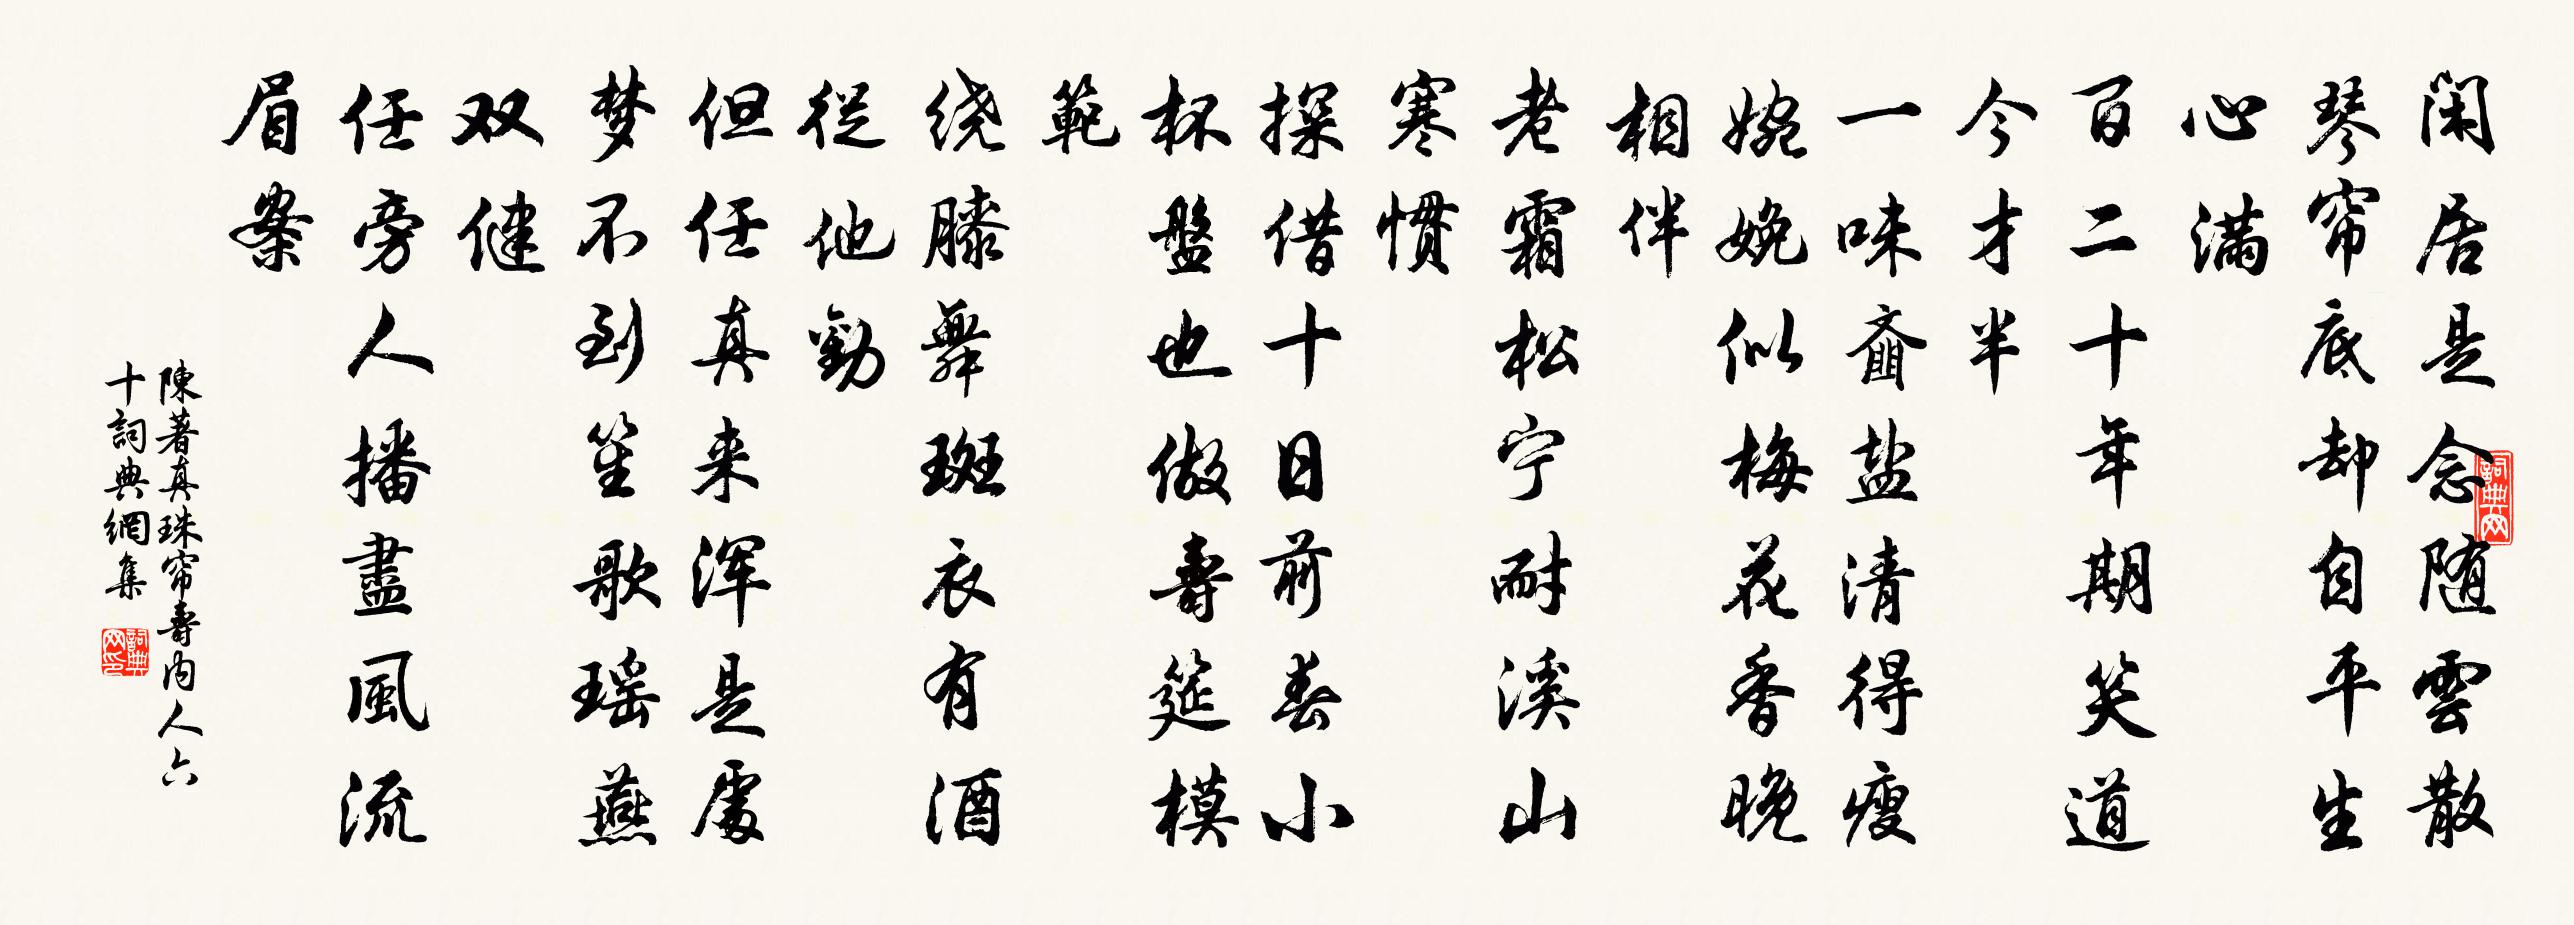 闲居是念随雲散
琴帘底却自平生
心满
百二十年期笑道
今才半
一味齑盐清得瘦
婉娩似梅花香晚
相伴
老霜松宁耐溪山
寒惯
探借十日前春小
杯盤也做壽筵模
範
绕膝舞斑衣有酒
從他勸
但任真来浑是處
梦不到笙歌瑶燕
双健
任旁人播盡風流
眉案
陳著真珠帘壽内人六
十詞典網集
詞典网
詞典网印